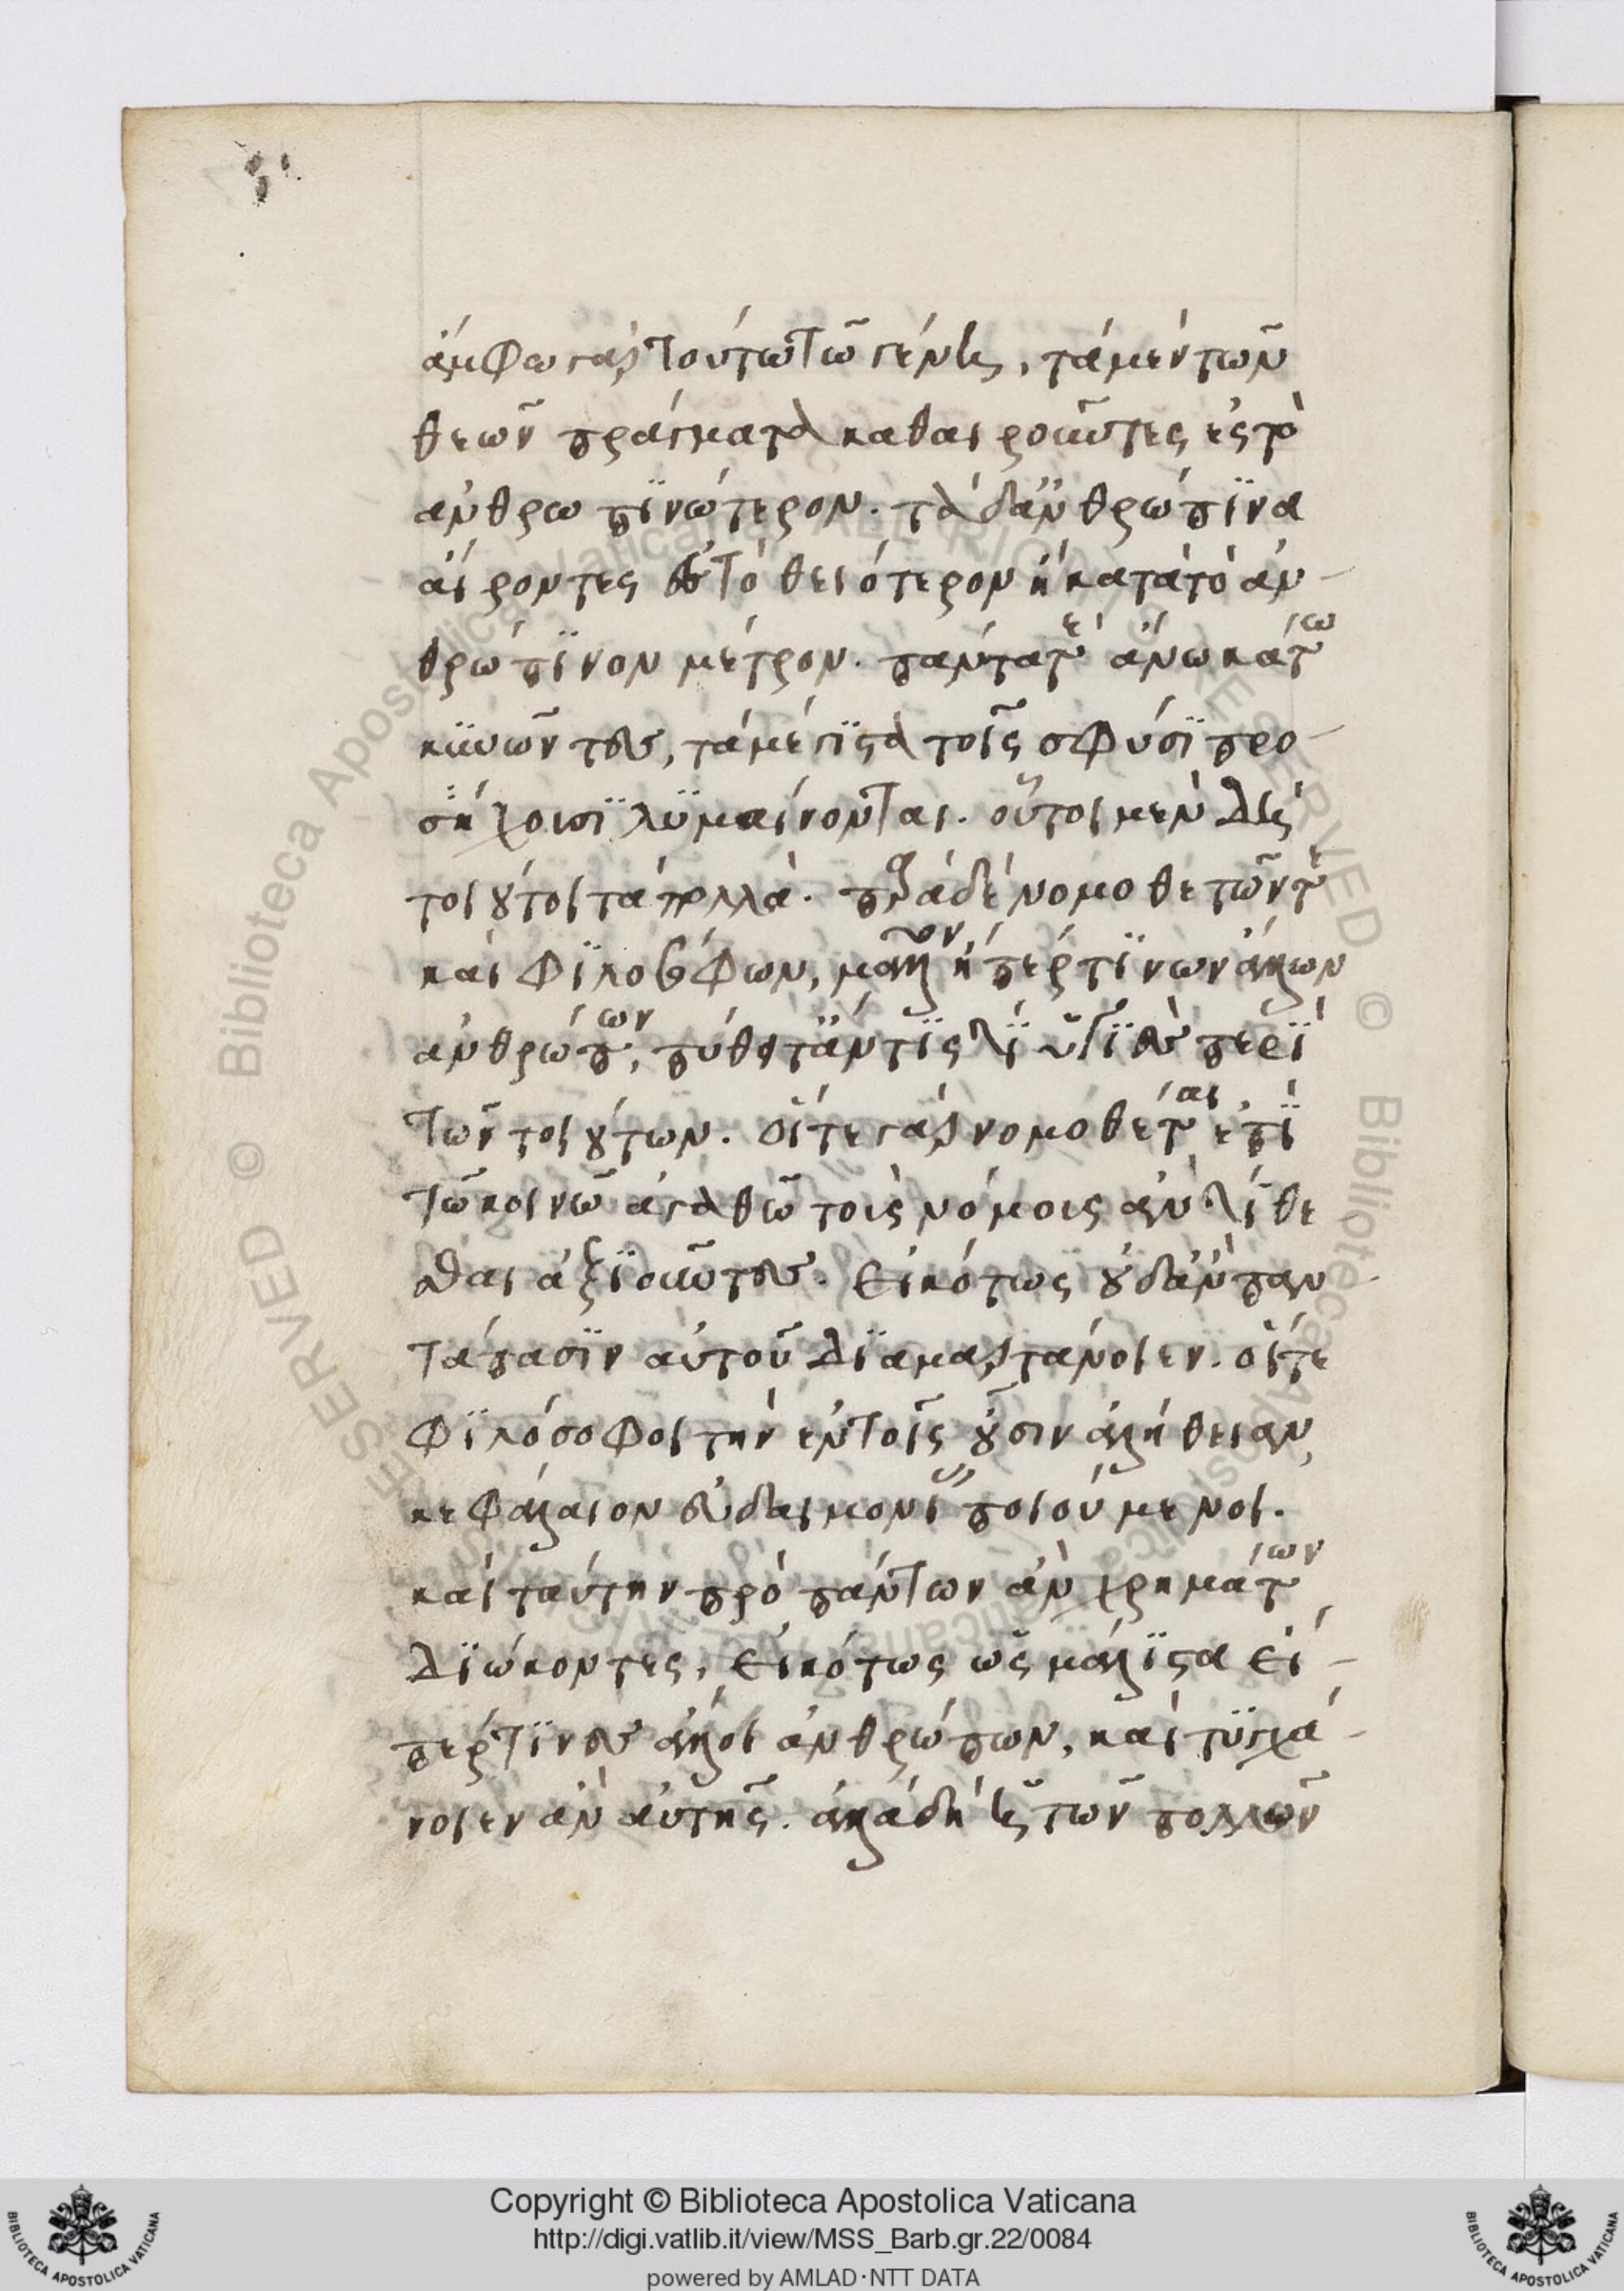 ἄμφω γὰρ τούτω τὼ γένη, τὰ μὲν τῶν
θεῶν πράγματα καθαιροῦντες ἐς τὸ
ἀνθρωπϊνώτερον. τὰ δ' ἀνθρώπϊνα
αἴροντες ἐς τὸ θειότερον ἢ κατὰ τὸ ἀν-
θρώπϊνον μέτρον. πάντα τε ἄνω κάτω
κυκῶντες, τὰ μέγϊστα τοῖς σφίσϊ προ-
σήκουσϊ λϋμαίνονται. οὗτοι μὲν δὴ
τοιοῦτοι τὰ πολλά. παρὰ δὲ νομοθετῶν τε
καὶ φϊλοσόφων, μᾶλλον ἤπερ τϊνων ἄλλων
ἀνθρώπων, πύθοιτ' ἄν τϊς τϊ ὑγϊὲς περὶ
τῶν τοιούτων. οἵτε γὰρ νομοθέται ἐπὶ
τῷ κοινῷ ἀγαθῷ τοὺς νόμους ἀν τίθε
σθαι ἀξϊοῦντες. εἰκότως οὐδ' ἂν παν-
τάπασϊν αὐτοῦ δϊαμαρτάνοιεν. οἵτε
φϊλόσοφοι τὴν ἐν τοῖς οὖσιν ἀλήθειαν,
κεφάλαιον εὐδαιμονίας ποιούμενοι.
καὶ ταύτην πρὸ πάντων ἂν χρημάτων
δϊώκοντες, εἰκότως ὡς μάλϊστα εἴ-
περ τϊνες ἄλλοι ἀνθρώπων, καὶ τϋγχά-
νοιεν ἂν αὐτῆς. ἀλλὰ δὴ ἡ τῶν πολλῶν
Copyright © Biblioteca Apostolica Vaticana
http://digi.vatlib.it/view/MSS_Barb.gr.22/0084
powered by AMLAD·NTT DATA